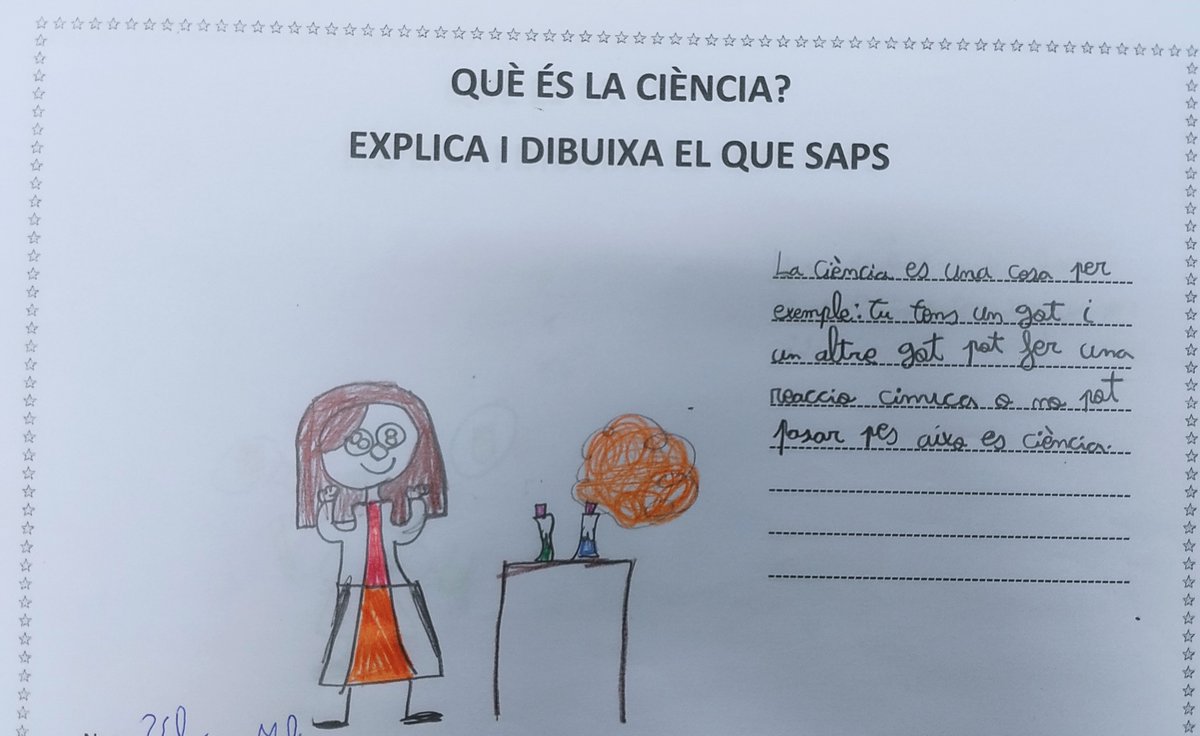 QUÈ ÉS LA CIÈNCIA?
EXPLICA I DIBUIXA EL QUE SAPS
La Ciència es una cosa per
exemple: tu tens un got i
un altre got pot fer una
reaccio cimica o no pot
pasar pes aixo es ciència.